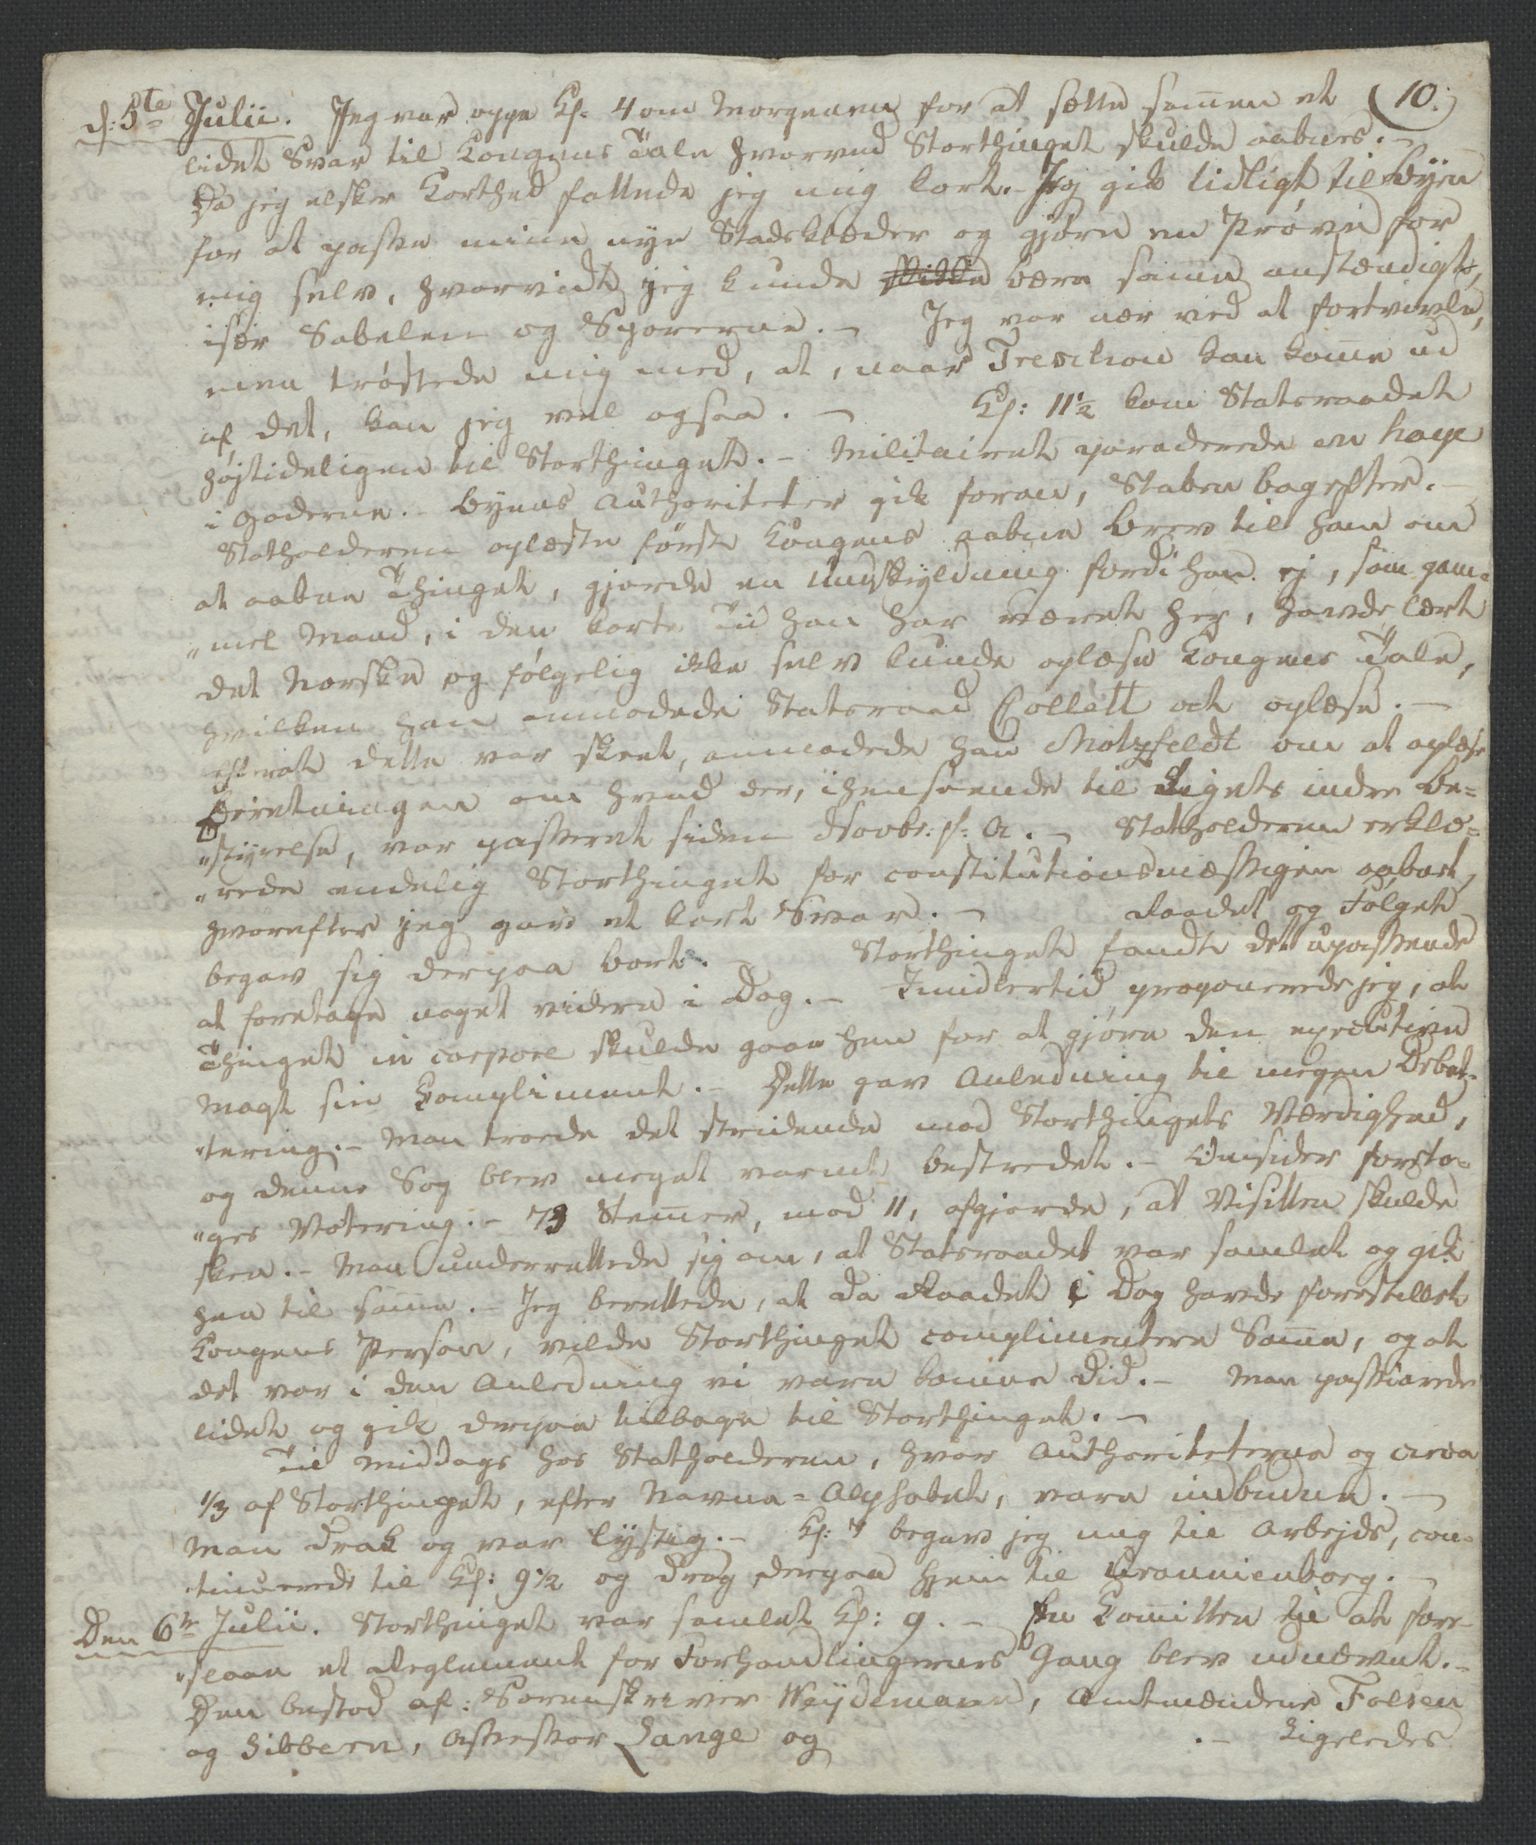 10.
d: 5te Julii. Jeg var oppe Kl: 4 om Morgenen for at sætte sam̅en et
lidet Svar til Kongens Tale hvorved Storthinget skulde aabnes. –
Da jeg elsker Korthed fattede jeg mig kort. – Jeg gik tidligt til Byen
for at passe mine nye Stadsklæder og gjøre en Prøve for
mig selv, hvorvidt jeg kunde bære sam̅e anstændigt,
især Sabelen og Sporerne. – Jeg var nær ved at fortvivle,
men trøstede mig med, at, naar Treschow kan kom̅e ud
af det, kan jeg vel ogsaa. – Kl: 11½ kom Statsraadet
højtideligen til Storthinget. – Militairet paraderede en haye
i Gaderne. – Byens Authoriteter gik foran, Staben bagefter. –
Statholderen oplæste først Kongens aabne Brev til ham om
at aabne Thinget, gjorde en Undskyldning fordi han ej, som gam-
„mel Mand, i den korte Tid han har været her, havde lært
det Norske og følgelig ikke selv kunde oplæse Kongens Tale,
hvilken han anmodede Statsraad Collett at oplæse. –
Efterat dette var skeet, anmodede han Motzfeldt om at oplæse
Beretningen om hvad der, i henseende til Rigets indre Be=
„styrelse, var passeret siden Novbr: f: A. – Statholderen erklæ=
„rede endelig Storthinget for constitutionsmæssigen aabnet,
hvorefter jeg gav et kort Svar. – Raadet og Følget
begav sig derpaa bort. – Storthinget fandt det upassende
at foretage noget videre i Dag. – Imidlertid proponerede jeg, at
Thinget in corpore skulde gaae hen for at gjøre den executive
Magt sin Compliment. – Dette gav Anledning til megen Debat-
„tering. – Man troede det stridende mod Storthingets Værdighed,
og denne Sag blev meget varmt bestredet. – Omsider foreto=
„ges Votering. – 73 Stem̅er, mod 11, afgjorde, at Visitten skulde
skee. – Man underrettede sig om, at Statsraadet var samlet og gik
hen til sam̅e. – Jeg berettede, at da Raadet i Dag havde forestillet
Kongens Person, vilde Storthinget complimentere Sam̅e, og at
det var i den Anledning vi vare kom̅ne did. – Man passiarede
lidet og gik derpaa tilbage til Storthinget. –
Til Middags hos Statholderen, hvor Authoriteterne og circa
1/3 af Storthinget, efter Navne=Alphabet, vare indbudne. –
Man drak og var lystig. – Kl: 7 begav jeg mig til Arbejde, con-
„tinuerede til Kl: 9½ og drog derpaa hjem til Uranienborg. –
Den 6te Julii. Storthinget var samlet Kl: 9. – En Com̅itte til at fore-
„slaae et Reglement for Forhandlingernes Gang blev udnævnt. –
Den bestod af: Sorenskriver Weydemann, Amtmændene Falsen
og Sibbern, Assessor Lange og . – Ligeledes